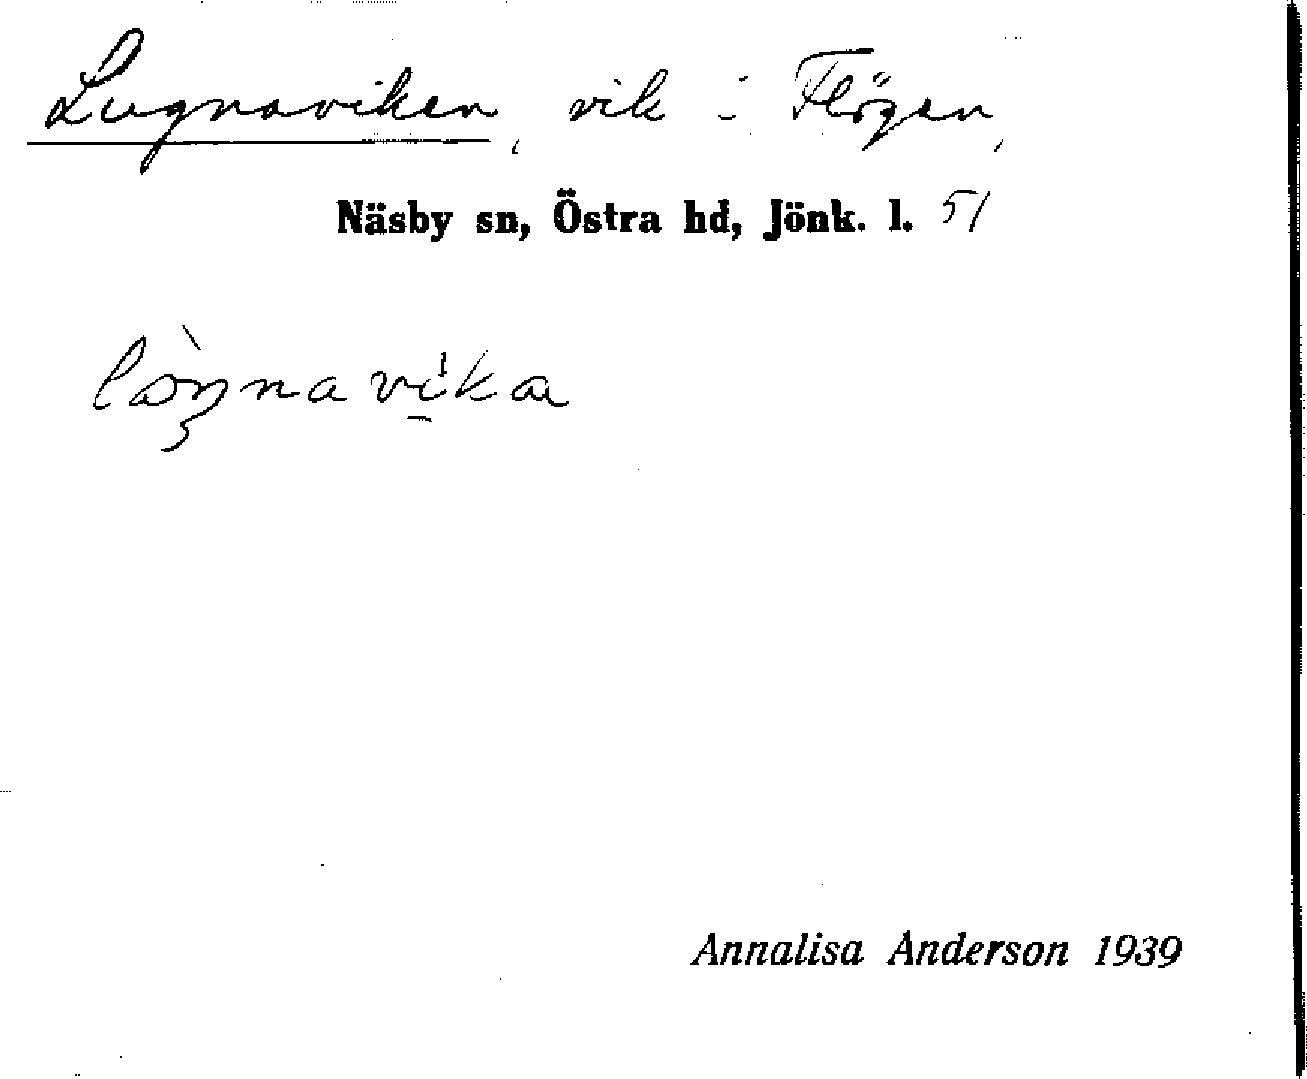 Lugnaviken, vik i Flögen,
Näsby sn, Östra hd, Jönk. l. 51
Annalisa Anderson 1939